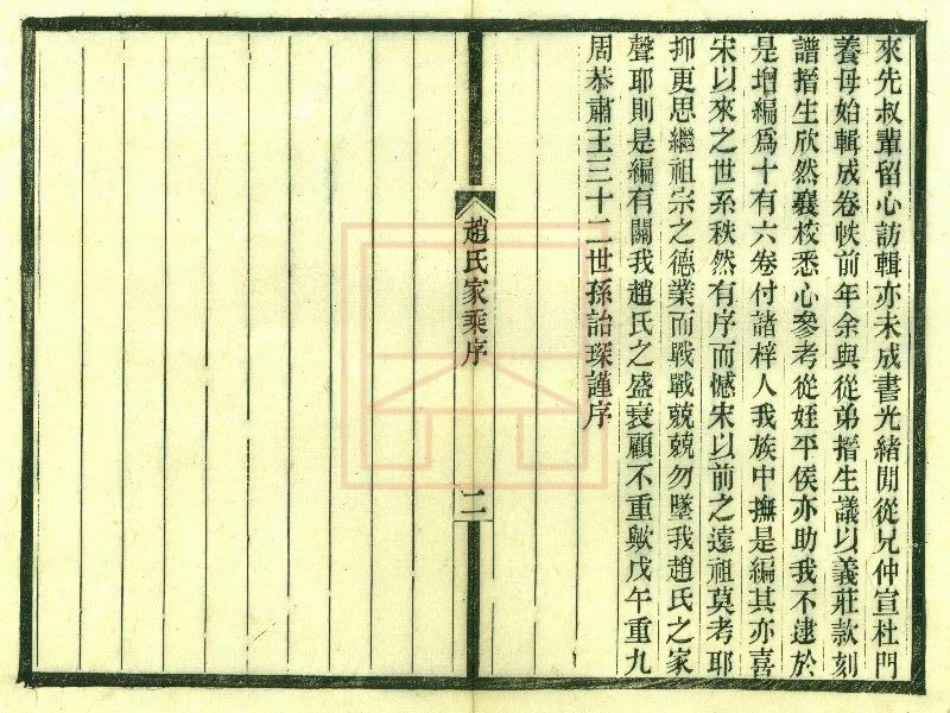 來先叔輩留心訪輯亦未成書光緒間從兄仲宣杜門
養母始輯成卷帙前年余與從弟搢生議以義莊款刻
譜搢生欣然襄校悉心參考從姪平侯亦助我不逮於
是增編爲十有六卷付諸梓人我族中撫是編其亦喜
宋以來之世系秩然有序而憾宋以前之遠祖莫考耶
抑更思繼祖宗之德業而戰戰兢兢勿墜我趙氏之家
聲耶則是編有關我趙氏之盛衰顧不重歟戊午重九
周恭肅王三十二世孫詒琛謹序
趙氏家乘序
二